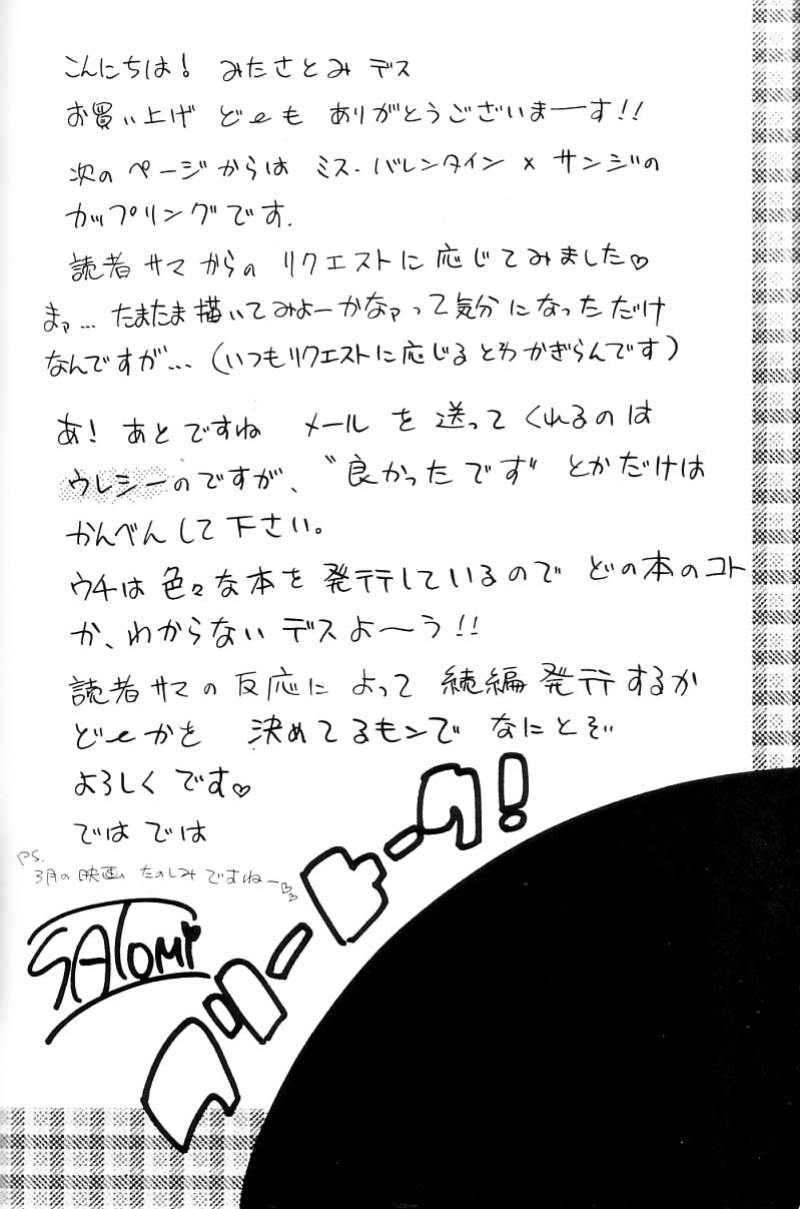 こんにちは! みたさとみ デス
お買い上げ どーも ありがとうございまーす!!
次の ページからは ミス・バレンタイン × サンジの
カップリングです.
読者サマからの リクエストに応じてみました♡
まァ… たまたま描いてみよーかなァって気分になっただけ
なんですが… (いつもリクエストに応じるとわかぎらんです)
あ! あとですね メールを送ってくれるのは
ウレシーのですが、〝良かったです〟とかだけは
かんべんして下さい。
ウチは色々な本を発行しているので どの本のコト
か、わからないデスよ〜う!!
読者サマの反応によって 続編発行するか
どーかを 決めてるモンで なにとぞ
よろしくです♡
ではでは
PS.
3月の映画 たのしみですねー♡♡
SATOMI
フリートーク!